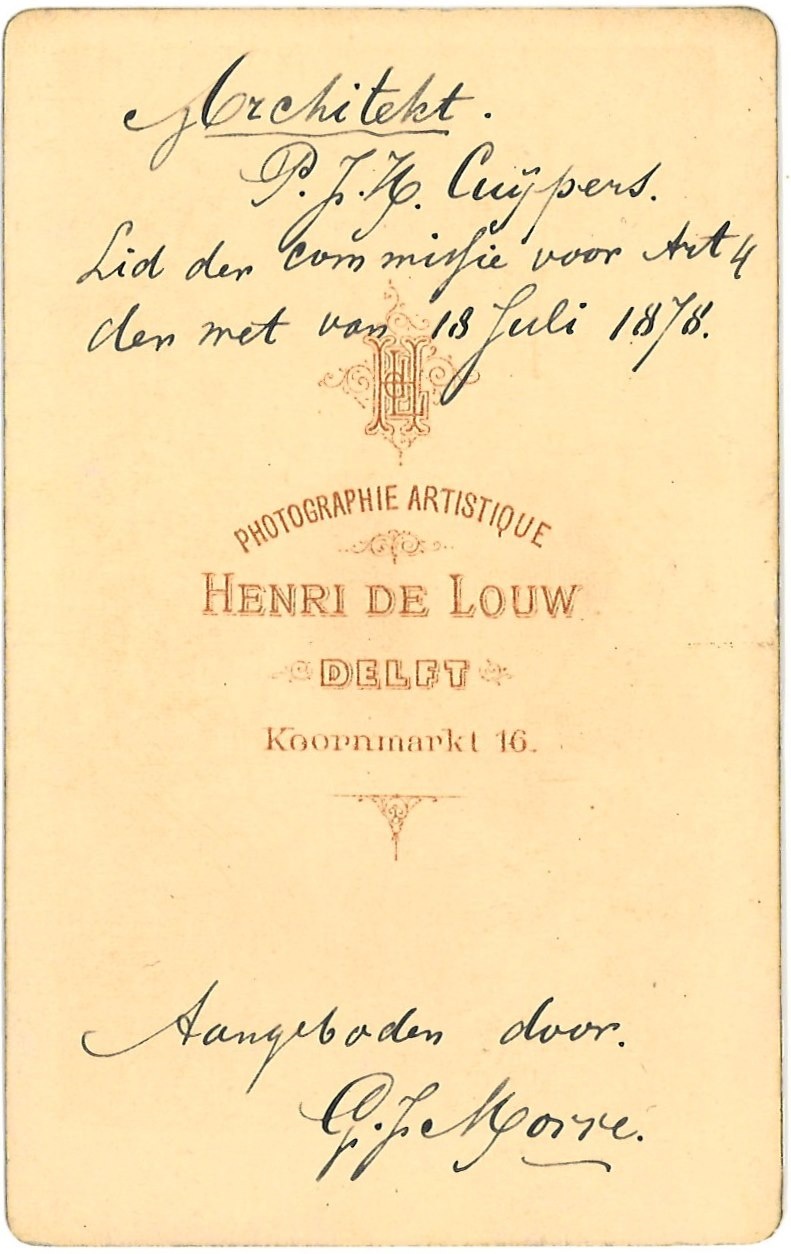 Architekt.
P. J. H. Cuÿpers.
Lid der commissie voor Art 4
der wet van 18 Juli 1878.
HL
PHOTOGRAPHIE ARTISTIQUE
HENRI DE LOUW
DELFT
Koornmarkt 16.
Aangeboden door.
G. J. Morre.